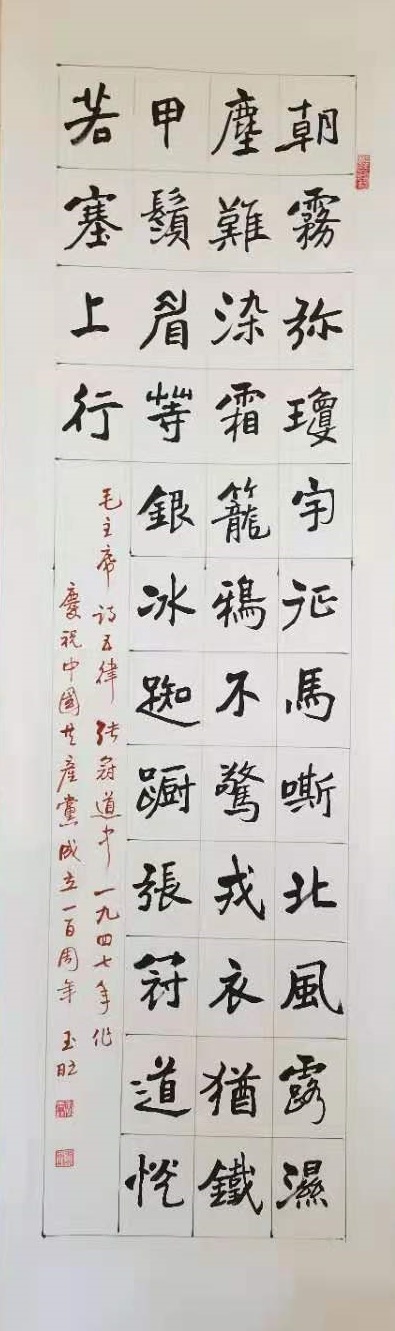 朝霧弥瓊宇征馬嘶北風露濕
塵難染霜籠鴉不驚戎衣猶鐵
甲鬚眉等銀冰踟躕張冠道恍
若塞上行
毛主席诗五律 张冠道中 一九四七年作
慶祝中國共產黨成立一百周年 玉